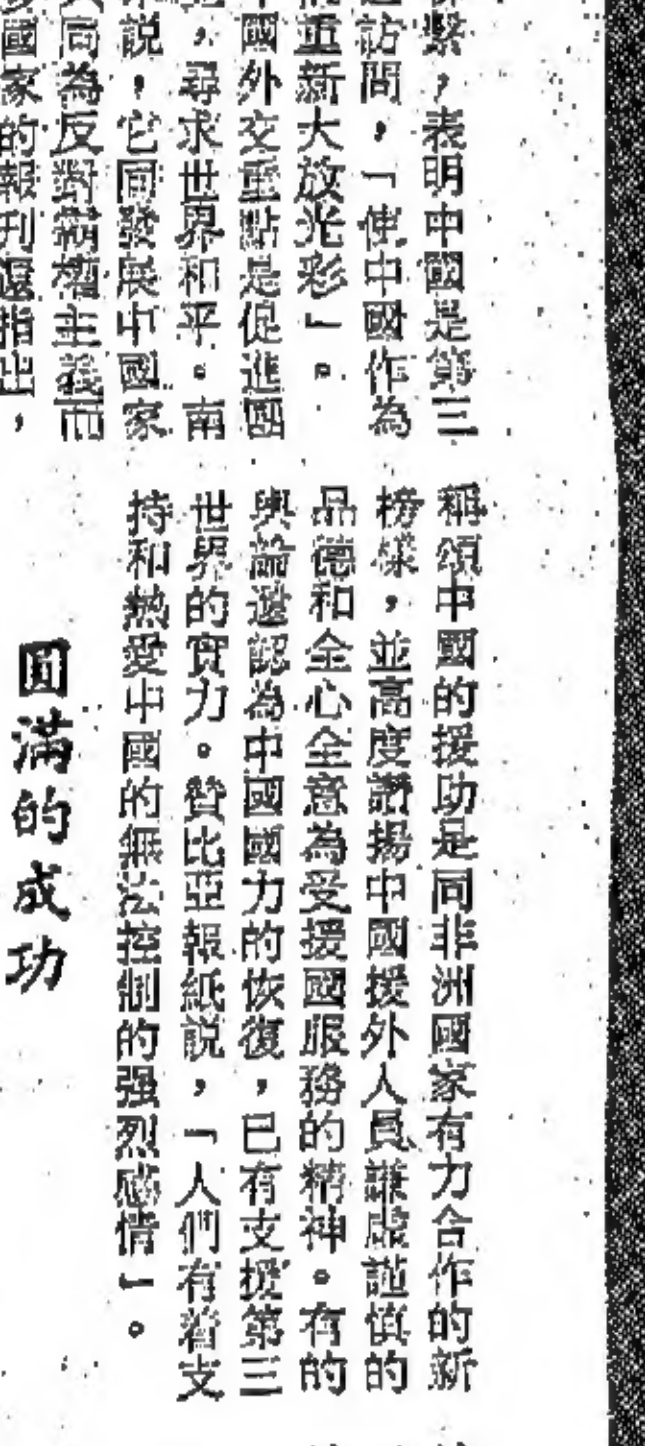 ，表明中國是第三
訪問，「使中國作為
重新大放光彩」。
國外交重點是促進團
，尋求世界和平。南
説，它同發展中國家
同為反對霸權主義而
國家的報刊還指出，
稱頌中國的援助是同非洲國家有力合作的新
榜樣，並高度讚揚中國援外人員謙虛謹慎的
品德和全心全意為受援國服務的精神。有的
輿論還認為中國國力的恢復，已有支援第三
世界的實力。贊比亞報紙説，「人們有着支
持和熱愛中國的無法控制的强烈感情」。
圓滿的成功